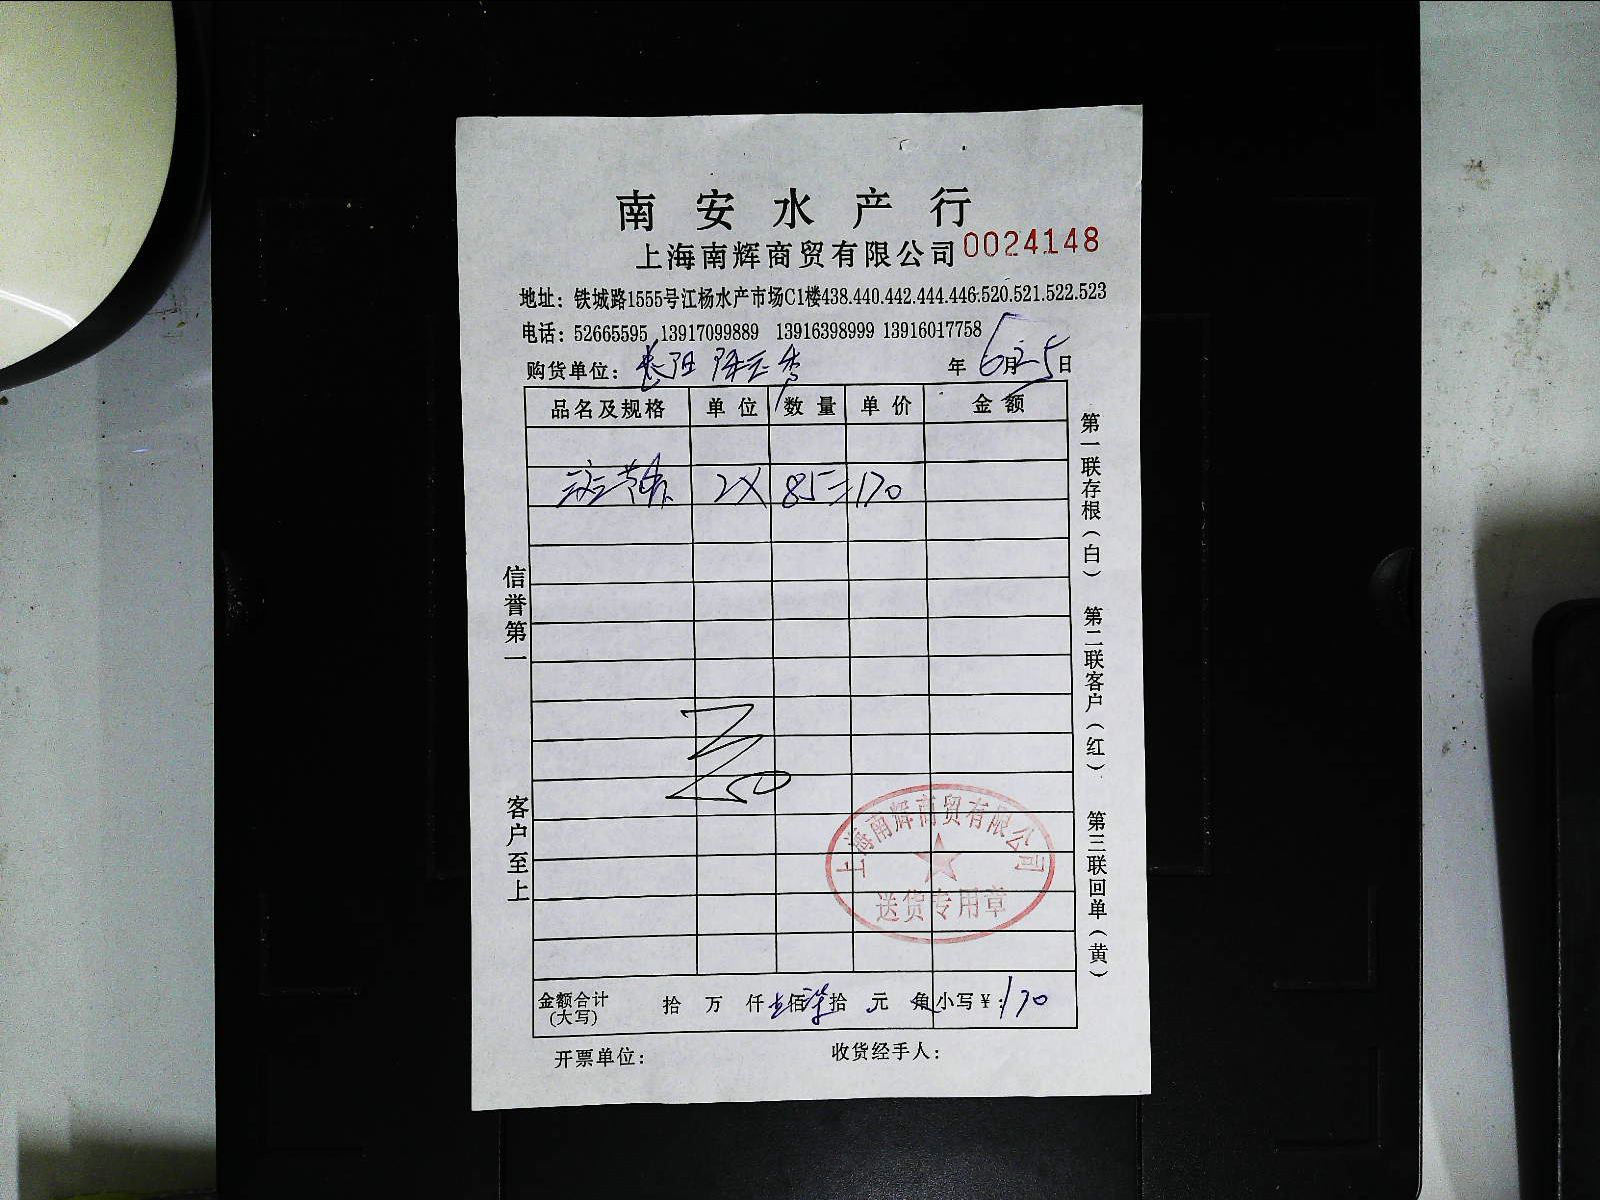 南安水产行
上海南辉商贸有限公司 0024148
地址：铁城路1555号江杨水产市场C1楼438.440.442.444.446.520.521.522.523
电话：52665595 13917099889 13916398999 13916017758
购货单位： 年 6月25日
品名及规格 单位 数量 单价 金额
2X 85=170
金额合计(大写) 拾 万 仟 壹佰柒拾 元 角 小写￥：170
开票单位： 收货经手人：
信誉第一
客户至上
第一联存根（白）
第二联客户（红）
第三联回单（黄）
上海南辉商贸有限公司
送货专用章